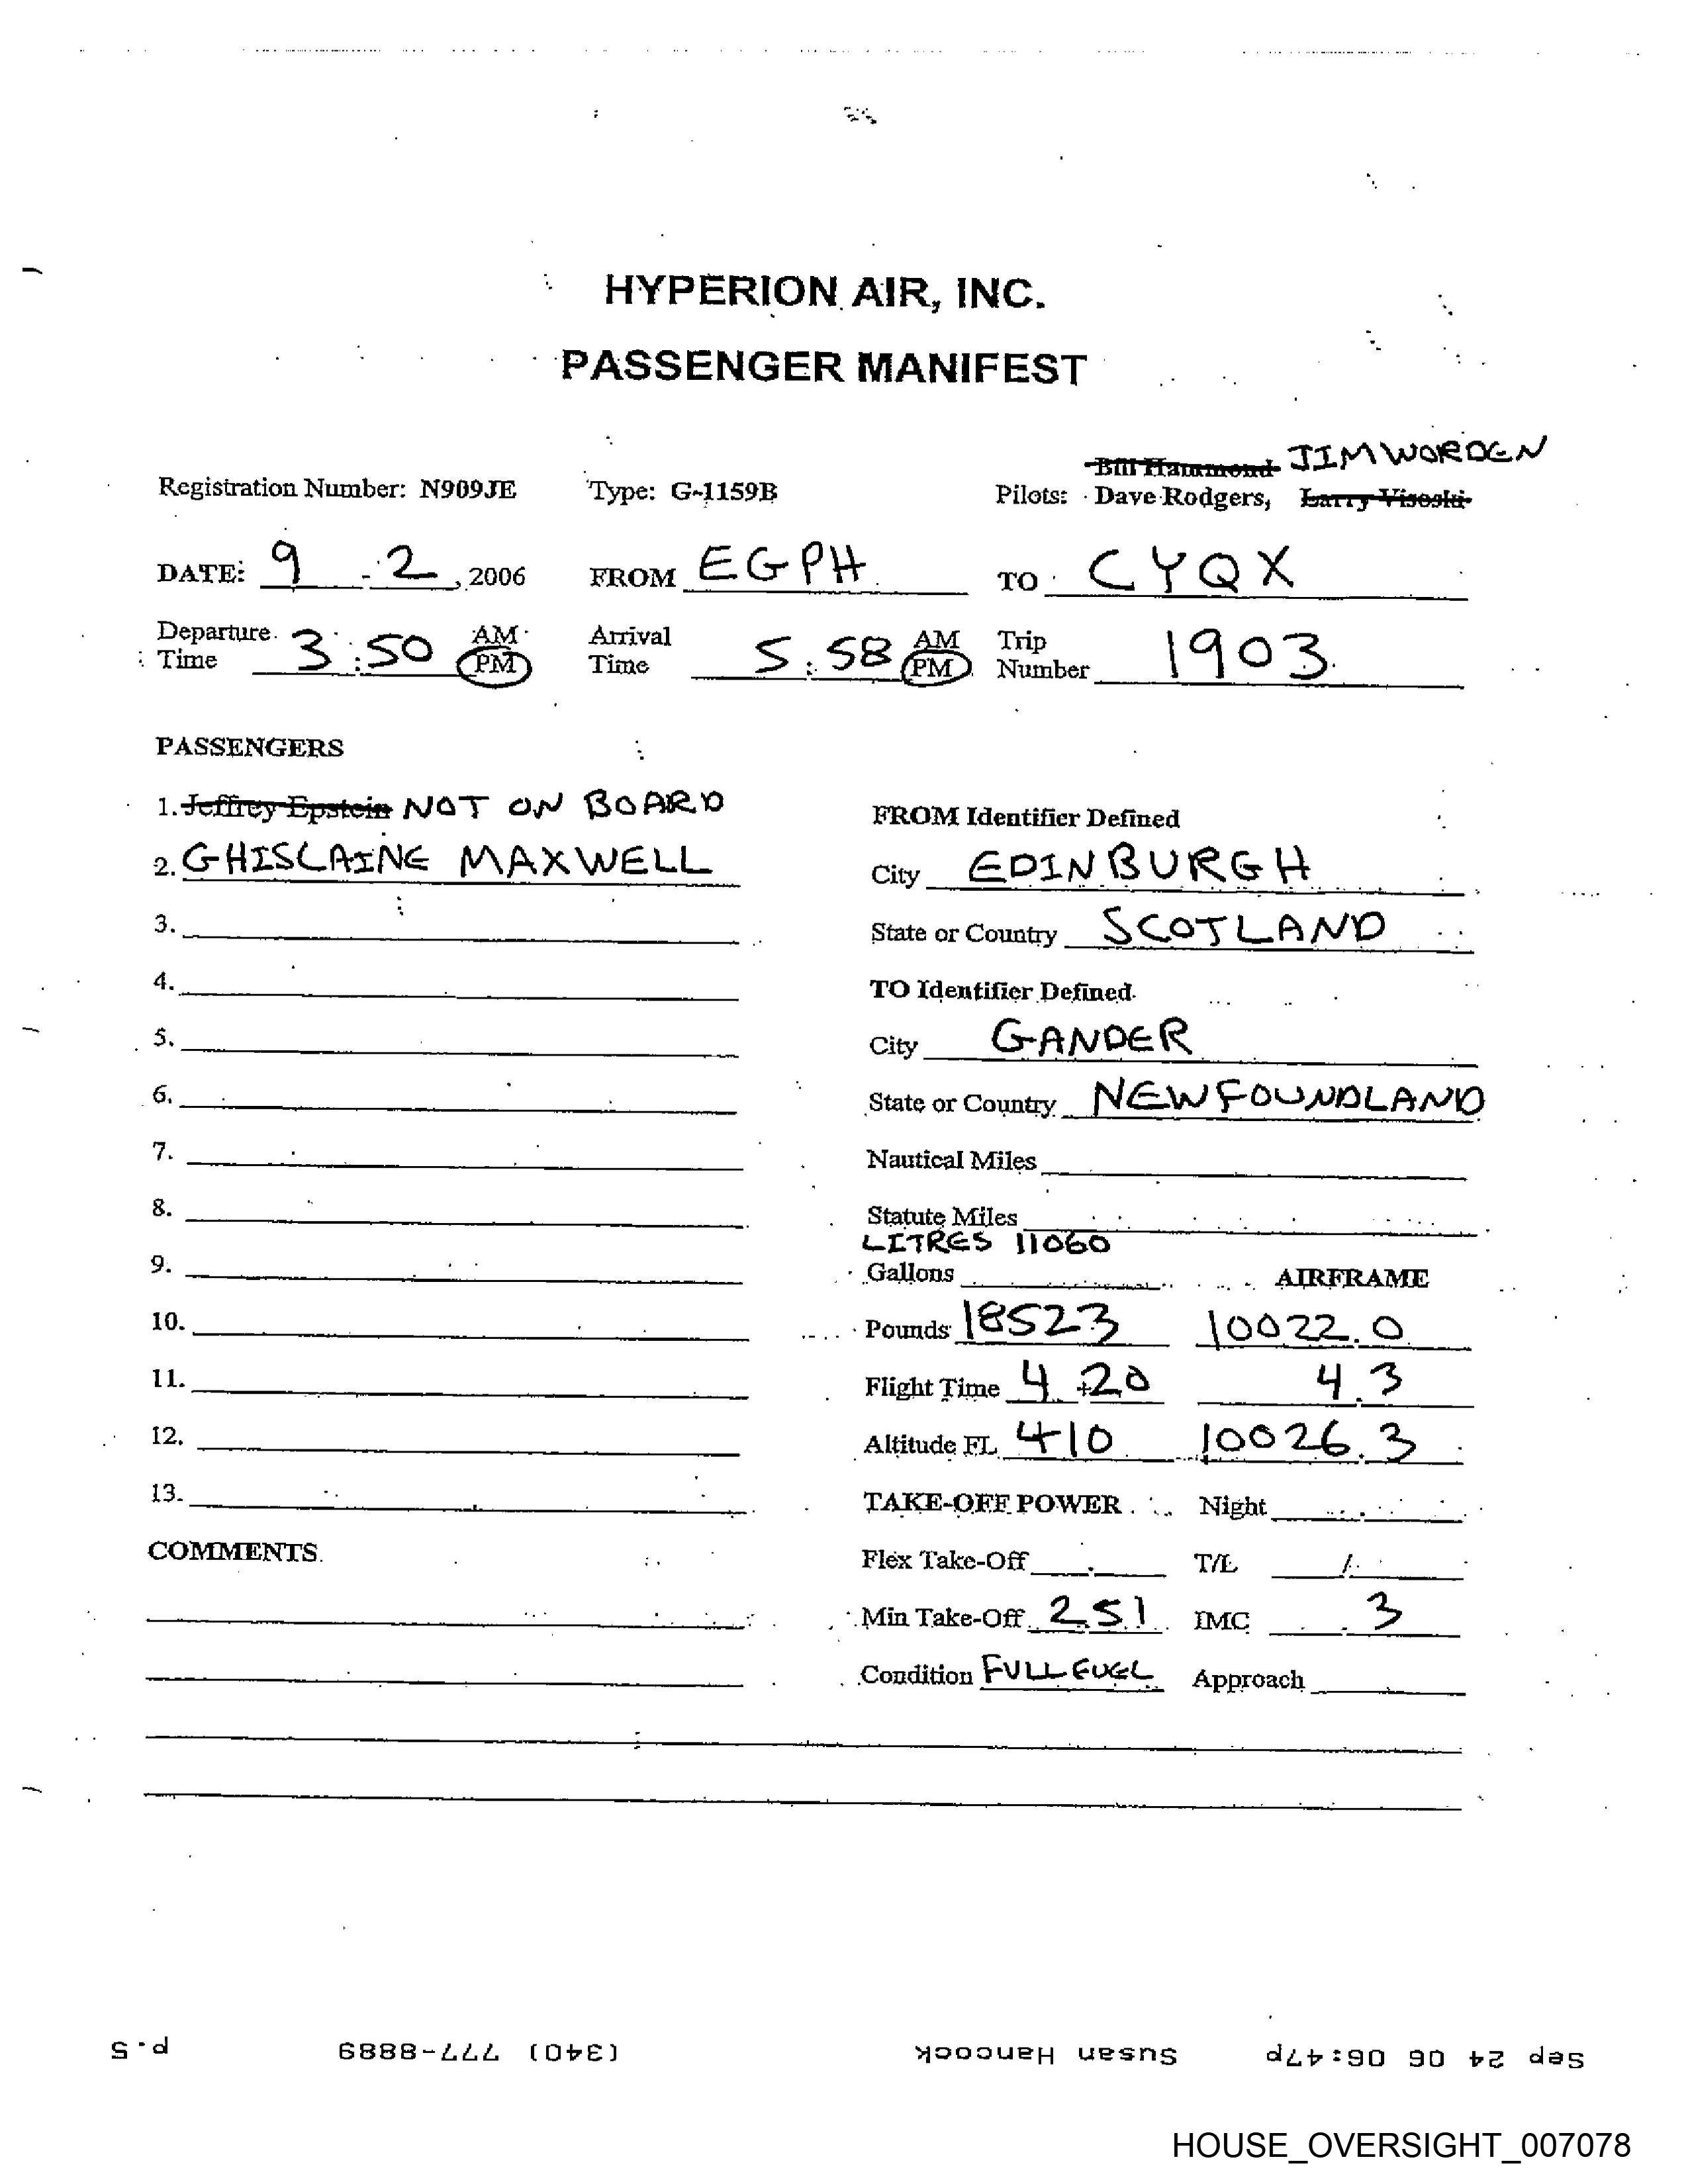 HYPERION AIR, INC.
PASSENGER MANIFEST
Bill Hammond JIM WORDEN
Registration Number: N909JE Type: G-1159B Pilots: Dave Rodgers, Larry Visoski
DATE: 9 - 2, 2006 FROM EGPH TO CYQX
Departure Time 3:50 AM PM Arrival Time 5:58 AM PM Trip Number 1903
PASSENGERS
1. Jeffrey Epstein NOT ON BOARD
FROM Identifier Defined
2. GHISLAINE MAXWELL
City EDINBURGH
3.
State or Country SCOTLAND
4.
TO Identifier Defined
5.
City GANDER
6.
State or Country NEWFOUNDLAND
7.
Nautical Miles
8.
Statute Miles
LITRES 11060
9.
Gallons AIRFRAME
10.
Pounds 18523 10022.0
11.
Flight Time 4+20 4.3
12.
Altitude FL 410 10026.3
13.
TAKE-OFF POWER Night
COMMENTS
Flex Take-Off . T/L /
Min Take-Off 2.51 IMC .3
Condition FULL FUEL Approach
Sep 24 06 06:47p Susan Hancock (340) 777-8889 p.5
HOUSE_OVERSIGHT_007078